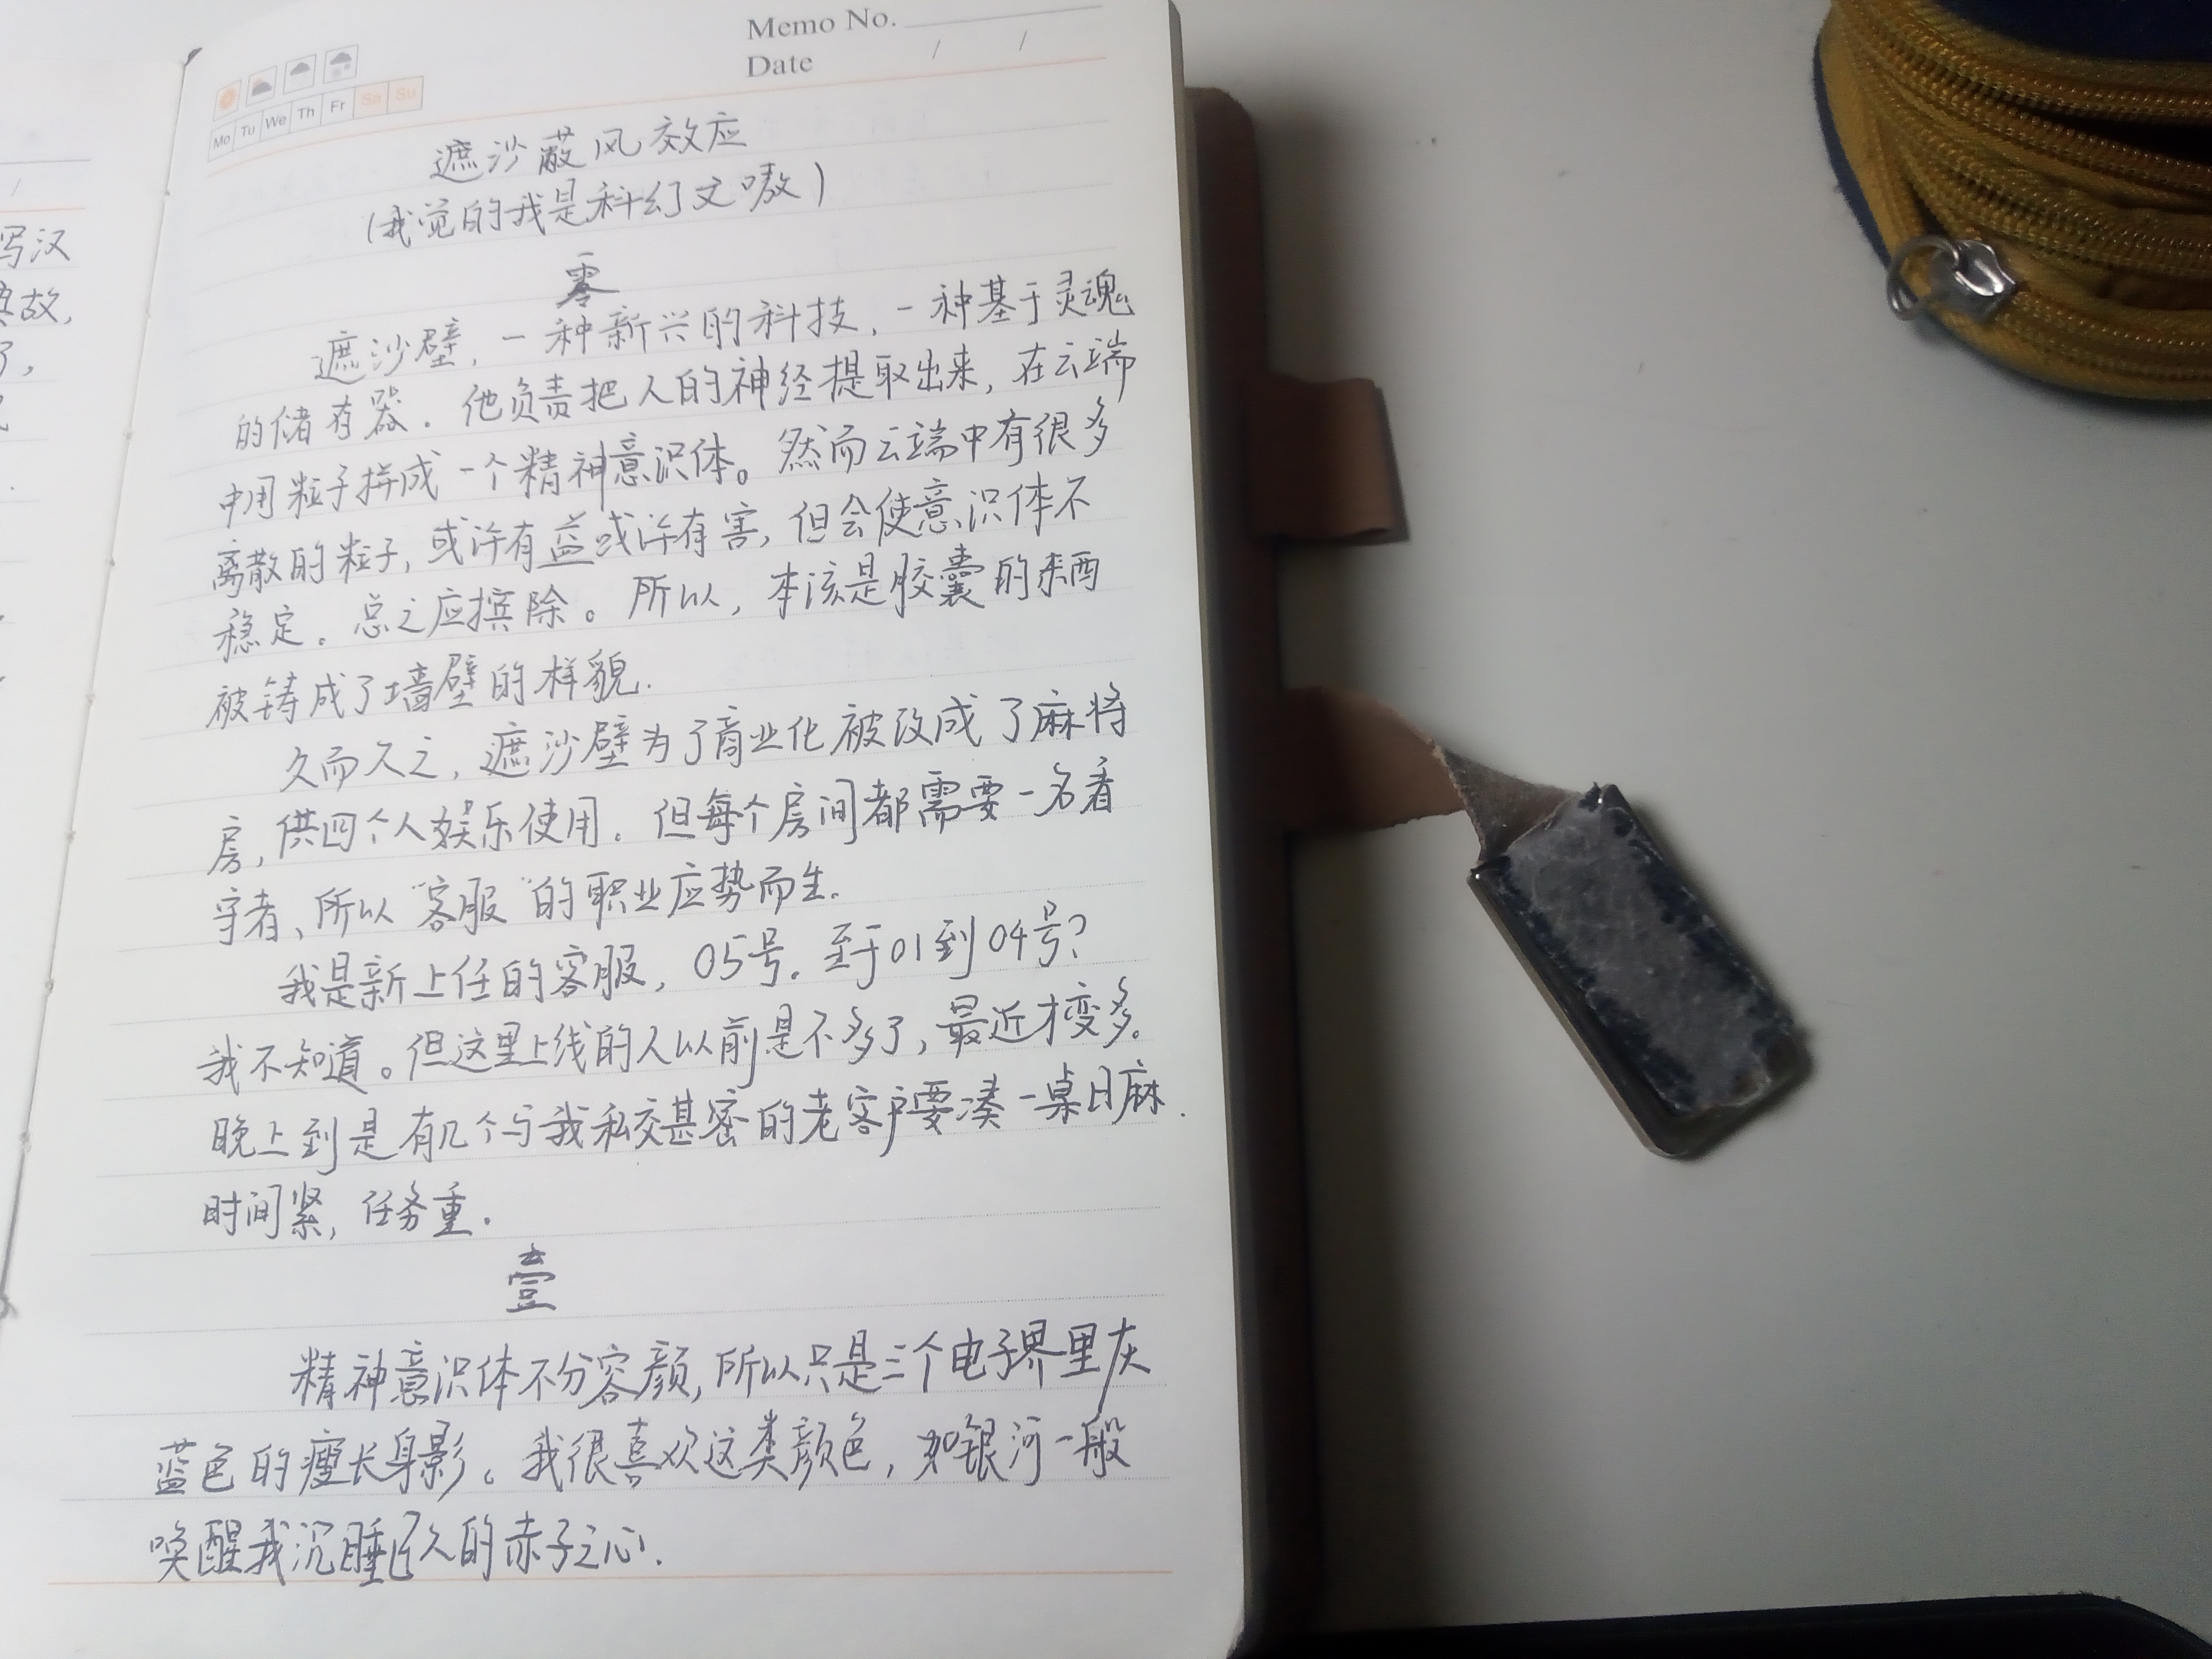 Memo No.
Date / /
Mo Tu We Th Fr Sa Su
遮沙蔽风效应
(我觉的我是科幻文嗷)
零
遮沙壁,一种新兴的科技,一种基于灵魂
的储存器.他负责把人的神经提取出来,在云端
中用粒子拼成一个精神意识体。然而云端中有很多
离散的粒子,或许有益或许有害,但会使意识体不
稳定。总之应摈除。所以,本该是胶囊的东西
被铸成了墙壁的样貌.
久而久之,遮沙壁为了商业化被改成了麻将
房,供四个人娱乐使用.但每个房间都需要一名看
守者、所以"客服"的职业应势而生.
我是新上任的客服,05号。至于01到04号?
我不知道。但这里上线的人以前是不多了,最近才变多。
晚上到是有几个与我私交甚密的老客户要凑一桌日麻.
时间紧,任务重.
壹
精神意识体不分容颜,所以只是三个电子界里灰
蓝色的瘦长身影。我很喜欢这类颜色,如银河一般
唤醒我沉睡已久的赤子之心.
写汉
故,
了,